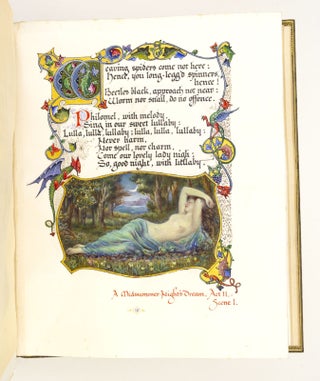 Weaving spiders come not here:
Hence, you long-legg'd spinners,
hence!
Beetles black, approach not near:
Worm nor snail, do no offence.
Philomel, with melody,
Sing in our sweet lullaby:
Lulla, lulla, lullaby; lulla, lulla, lullaby:
Never harm,
Nor spell, nor charm,
Come our lovely lady nigh:
So, good night, with lullaby.
A Midsummer Night's Dream. Act II.
Scene I.